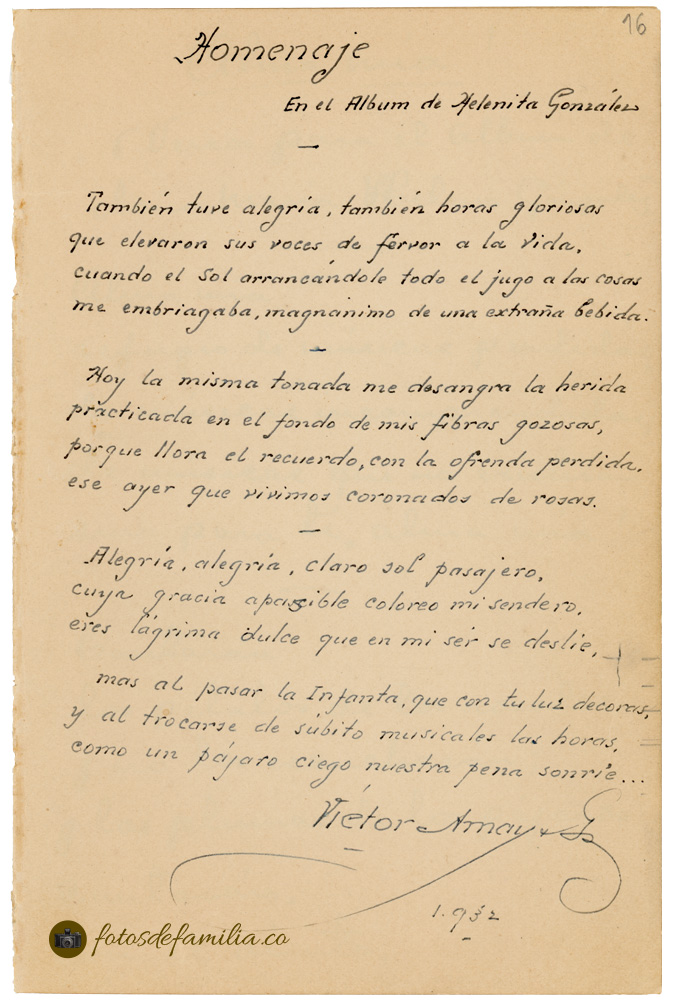 16
Homenaje
En el Album de Helenita González
—
También tuve alegría, también horas gloriosas
que elevaron sus voces de fervor a la vida,
cuando el Sol arrancándole todo el jugo a las cosas
me embriagaba, magnanimo de una extraña bebida.
—
Hoy la misma tonada me desangra la herida
practicada en el fondo de mis fibras gozosas,
porque llora el recuerdo, con la ofrenda perdida,
ese ayer que vivimos coronados de rosas.
—
Alegría, alegría, claro sol pasajero,
cuya gracia apascible coloreo mi sendero,
eres lágrima dulce que en mi sér se deslíe,
mas al pasar la Infanta, que con tu luz decoras,
y al trocarse de súbito musicales las horas,
como un pájaro ciego nuestra pena sonríe...
Víctor Amaya G
1.932
fotosdefamilia.co